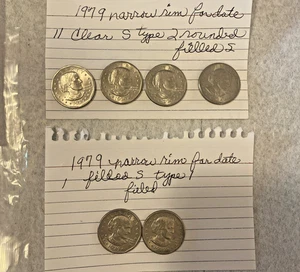 1979 narrow rim far date
11 Clear S type 2 rounded
filled S
1979 narrow rim far date
, filled S type 1